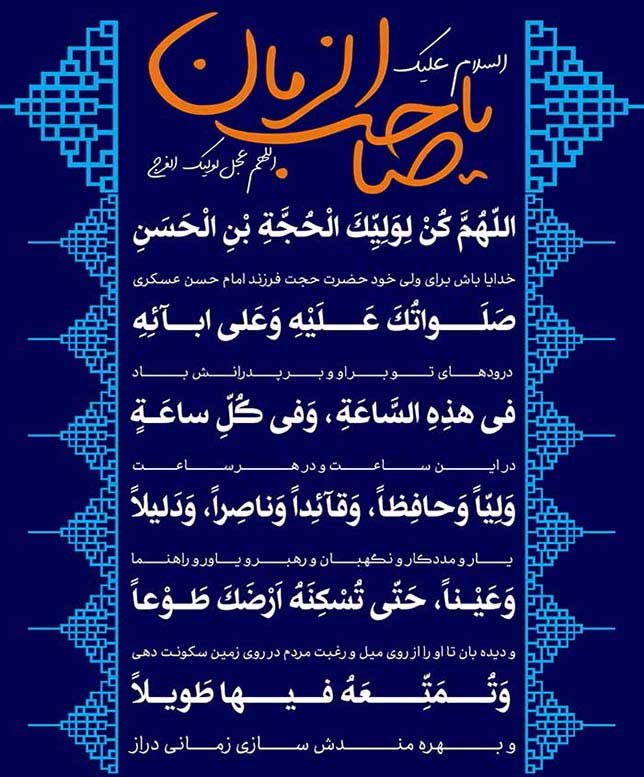 السلام علیک
یا صاحب الزمان
اللهم عجل لولیک الفرج
اللّهُمَّ كُنْ لِوَلِيِّكَ الْحُجَّةِ بْنِ الْحَسَنِ
خدایا باش برای ولی خود حضرت حجت فرزند امام حسن عسکری
صَلَواتُكَ عَلَيْهِ وَعَلى ابآئِهِ
درودهای تو بر او و بر پدرانش باد
فى هذِهِ السَّاعَةِ، وَفى كُلِّ ساعَةٍ
در این ساعت و در هر ساعت
وَلِيّاً وَحافِظاً، وَقآئِداً وَناصِراً، وَدَليلاً
یار و مددکار و نگهبان و رهبر و یاور و راهنما
وَعَيْناً، حَتّى تُسْكِنَهُ اَرْضَكَ طَوْعاً
و دیده بان تا او را از روی میل و رغبت مردم در روی زمین سکونت دهی
وَتُمَتِّعَهُ فيها طَويلاً
و بهره مندش سازی زمانی دراز